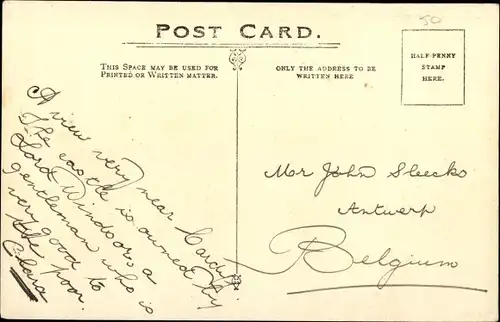 50
POST CARD.
THIS SPACE MAY BE USED FOR
PRINTED OR WRITTEN MATTER.
ONLY THE ADDRESS TO BE
WRITTEN HERE
HALF-PENNY
STAMP
HERE.
A view very near Cardiff.
The castle is owned by
Lord Windsor a
gentleman who is
very good to
the poor.
Clara
Mr John Sleecks
Antwerp
Belgium